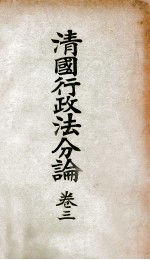 清國行政法分論
卷三